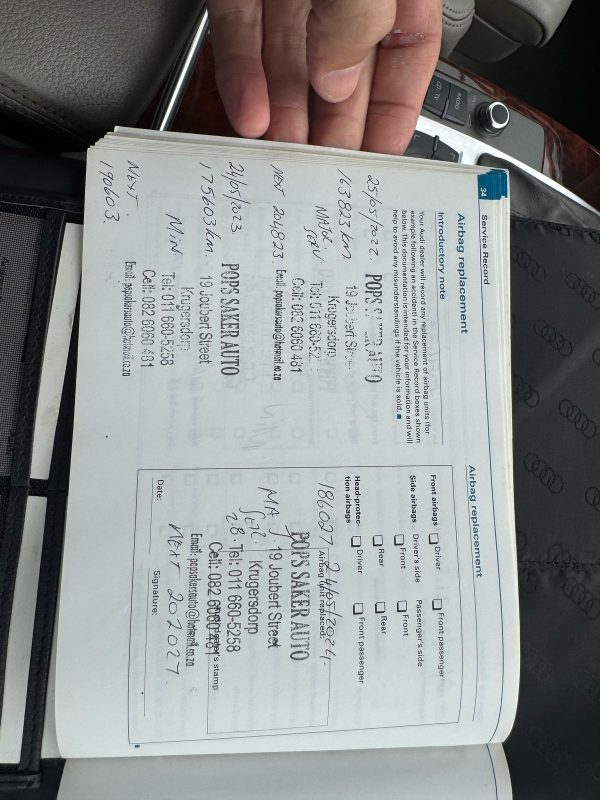 Service Record
34
Airbag replacement
Introductory note
Your Audi dealer will record any replacement of airbag units (for
example following an accident) in the Service Record boxes shown
below. This documentation is intended for your information and will
help to avoid any misunderstandings if the vehicle is sold. ■
25/05/2022.
163823 km
POPS SAKER AUTO
19 Joubert Street
Krugersdorp
MAJOR
SERV
Tel: 011 660-52
Cell: 082 6060 481
NEXT 204823
Email: popsakersauto@hotmail.co.za
24/05/2023
175603 km.
POPS SAKER AUTO
19 Joubert Street
Krugersdorp
Tel: 011 660-5258
Cell: 082 6060 481
Email: popsakersauto@hotmail.co.za
NEXT.
190603.
Airbag replacement
Front airbags
Driver
Front passenger
Side airbags
Driver's side
Passenger's side
Front
Front
Rear
Rear
Head-protec-
tion airbags
Driver
Front passenger
Airbag unit replaced:
186027
24/05/2024.
POPS SAKER AUTO
19 Joubert Street
Krugersdorp
Tel: 011 660-5258
Cell: 082 6060 481
Email: popsakersauto@hotmail.co.za
stamp
NEXT 202027.
Date:
Signature:
RADIO
CD/TV